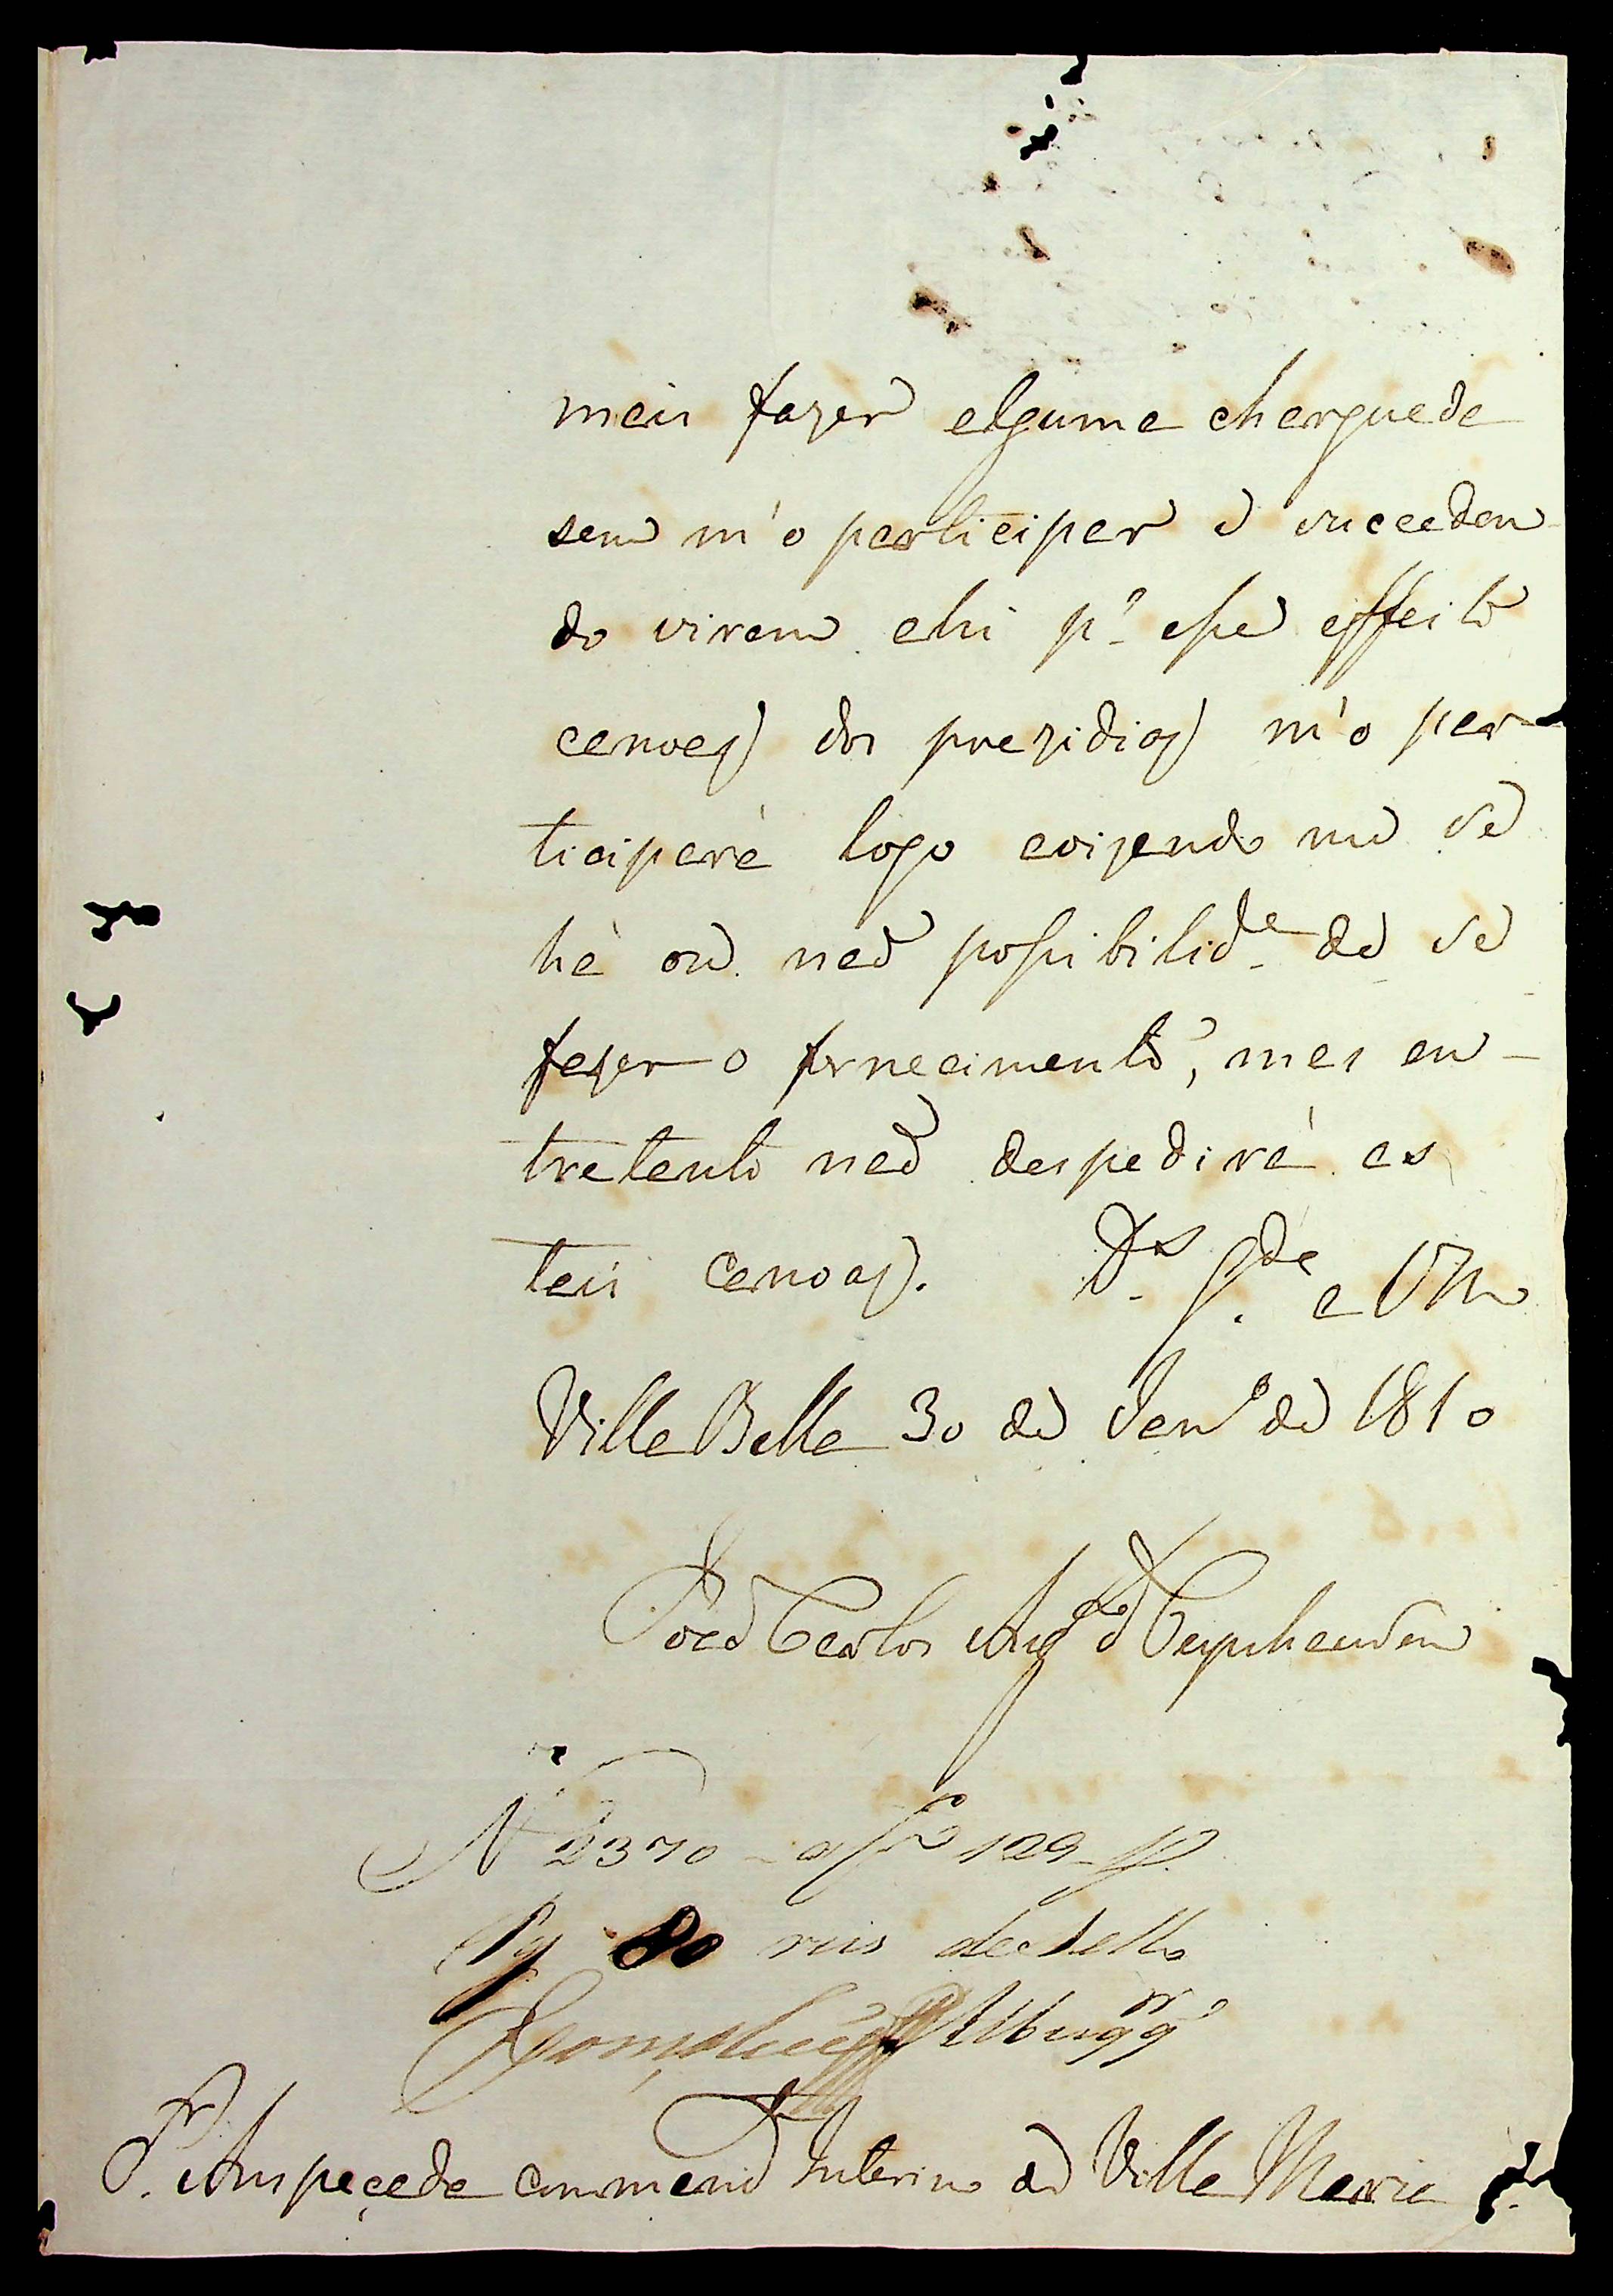 mais fazer alguma charqueada
sem m'o participar e succeden
do virem ahi p.ª esse effeito
canoas dos prezidios m'o par
ticipará logo avizando me se
há ou naõ possibilid.e de se
fazer o fornecimento, mas en-
tretanto naõ despedirá es
tas canoas. D.s g.de a VM
Villa Bella 30 de Jan.º de 1810
Joaõ Carlos Aug.to d'Oeynhausen
N 2370 a f 129
Pg 80 reis de sello
S.r Anspeçada Command.e Interino de Villa Maria